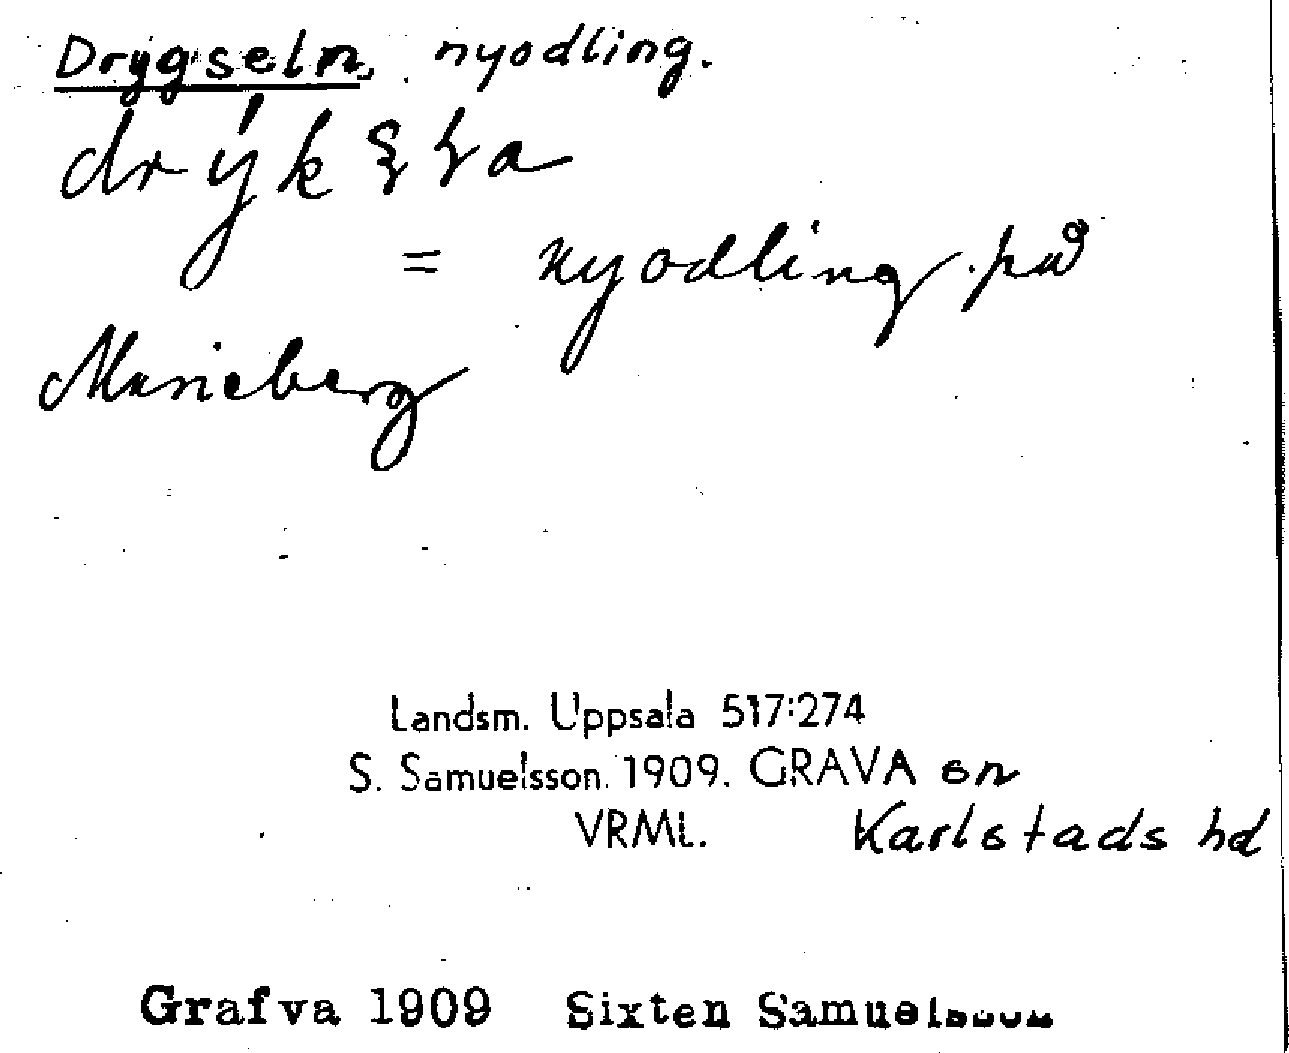 Drygseln, nyodling.
= nyodling på
Marieberg
Landsm. Uppsala 517:274
S. Samuelsson. 1909. GRAVA sn
VRML. Karlstads hd
Grafva 1909 Sixten Samuelsson